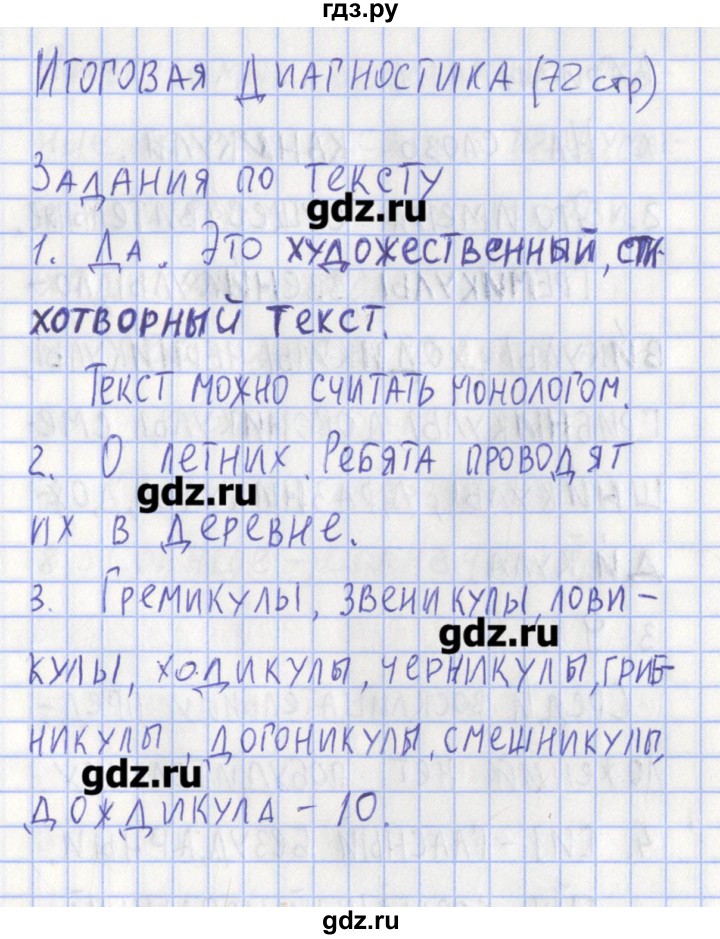 гдз.ру
ИТОГОВАЯ ДИАГНОСТИКА (72 стр)
ЗАДАНИЯ ПО ТЕКСТУ
gdz.ru
1. ДА. ЭТО ХУДОЖЕСТВЕННЫЙ, СТИ-
ХОТВОРНЫЙ ТЕКСТ.
ТЕКСТ МОЖНО СЧИТАТЬ МОНОЛОГОМ.
2. О ЛЕТНИХ. РЕБЯТА ПРОВОДЯТ
gdz.ru
ИХ В ДЕРЕВНЕ.
3. ГРЕМИКУЛЫ, ЗВЕНИКУЛЫ, ЛОВИ-
gdz.ru
КУЛЫ, ХОДИКУЛЫ, ЧЕРНИКУЛЫ, ГРИБ-
НИКУЛЫ, ДОГОНИКУЛЫ, СМЕШНИКУЛЫ,
gdz.ru
ДОЖДИКУЛА - 10.
gdz.ru